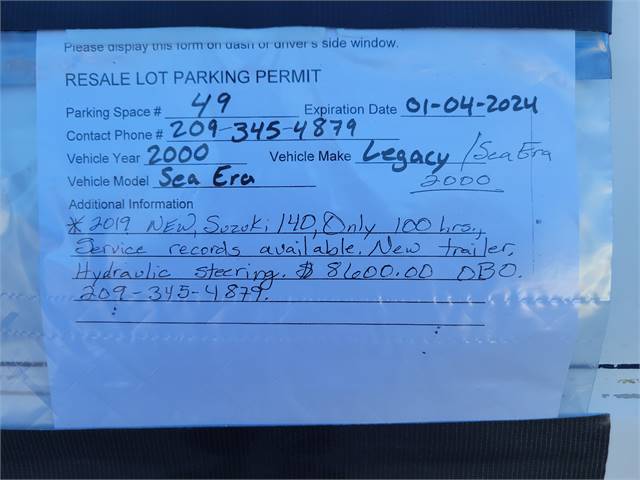 Please display this form on dash or driver's side window.
RESALE LOT PARKING PERMIT
Parking Space # 49 Expiration Date 01-04-2024
Contact Phone # 209-345-4879
Vehicle Year 2000 Vehicle Make Legacy / Sea Era
Vehicle Model Sea Era 2000
Additional Information
* 2019 NEW, Suzuki 140, Only 100 hrs.,
Service records available. New trailer,
Hydraulic steering. $ 8600.00 OBO.
209-345-4879.